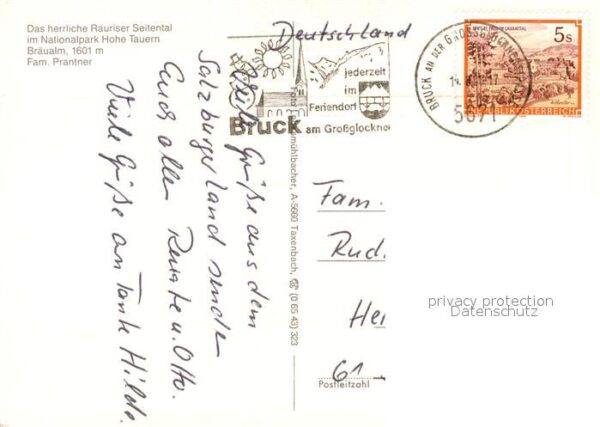 Das herrliche Rauriser Seitental
im Nationalpark Hohe Tauern
Bräualm, 1601 m
Fam. Prantner
Deutschland
jederzeit
im
Feriendorf
Bruck am Großglockner
BRUCK AN DER GROSSGLOCKNERSTRASSE
5671
5s
REPUBLIK ÖSTERREICH
Viele Grüße aus dem
Salzburgerland senden
Euch allen Renate u. Otto.
Viele Grüße an Tante Hilde.
mühlbacher, A-5660 Taxenbach, ☎ (0 65 43) 323
Fam.
Rud.
Hei
61
Postleitzahl
privacy protection
Datenschutz